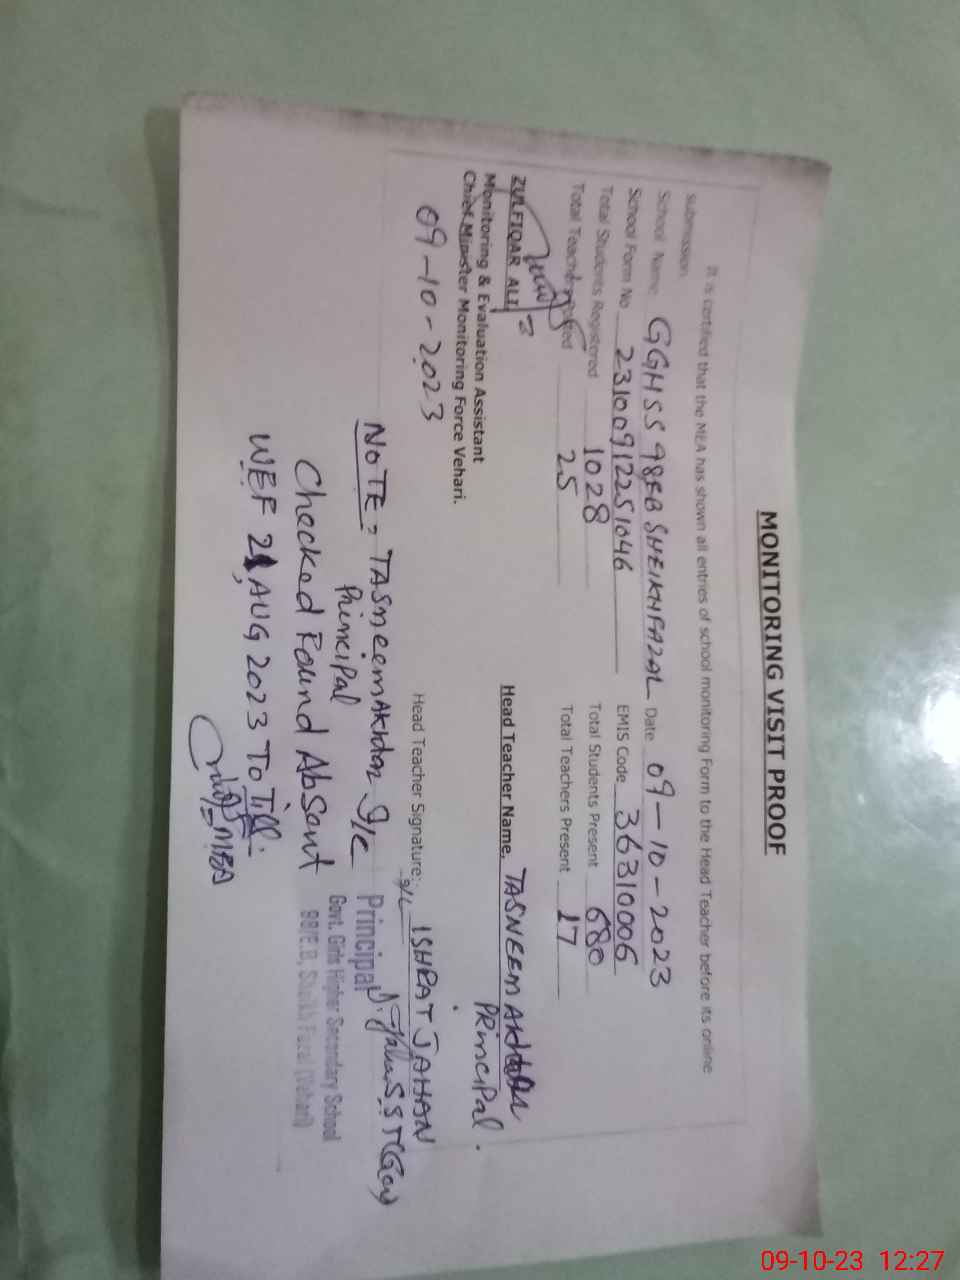 MONITORING VISIT PROOF
It is certified that the MEA has shown all entries of school monitoring Form to the Head Teacher before its online
submission.
School Name GGHSS 98EB SHEIKHFAZAL Date 09-10-2023
School Form No 23100912251046 EMIS Code 36310006
Total Students Registered 1028 Total Students Present 680
Total Teachers Posted 25 Total Teachers Present 17
ZULFIQAR ALI
Monitoring & Evaluation Assistant
Chief Minister Monitoring Force Vehari.
09-10-2023
Head Teacher Name. TASNEEM AKHTAR
PRINCIPAL.
Head Teacher Signature: I/C ISHRAT JAHAN
SST(Gen)
NOTE = TASneem AKhtar I/C
Principal
Checked Found Absent
WEF 21, AUG 2023 To Till.
MEA
Principal
Govt. Girls Higher Secondary School
98/E.B, Sheikh Fazal (Vehari)
09-10-23 12:27